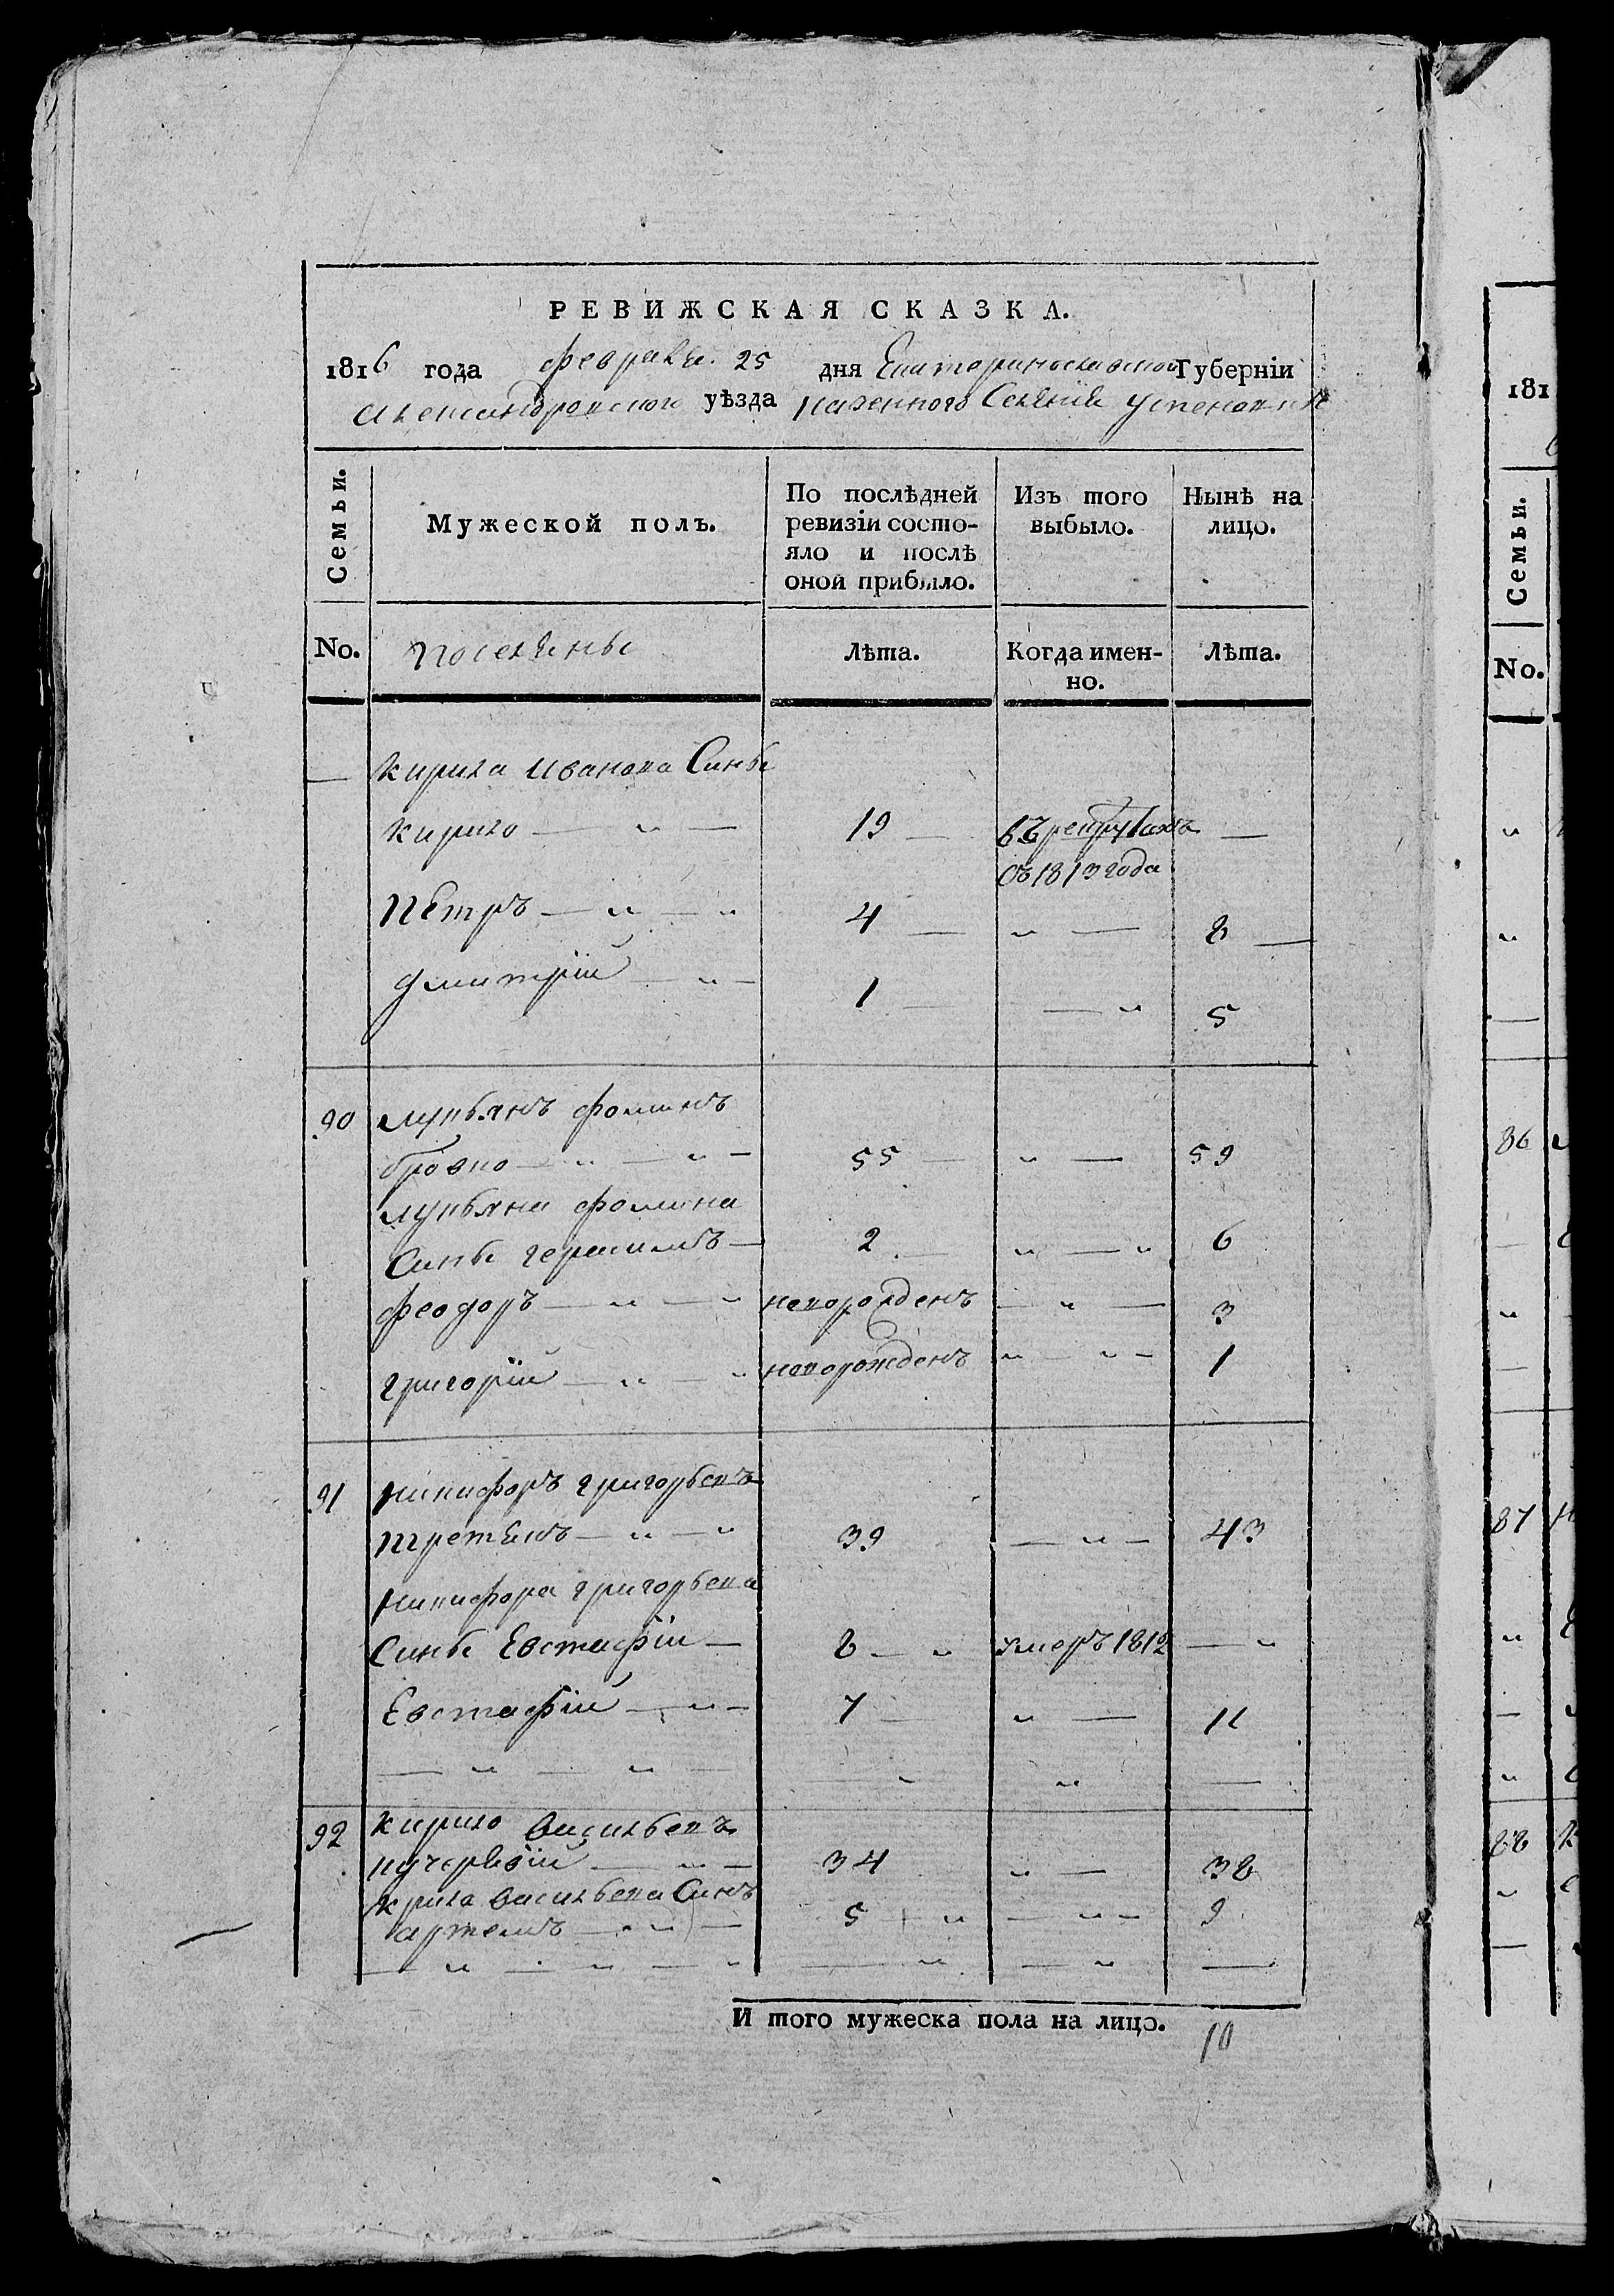 РЕВИЖСКАЯ СКАЗКА.
1816 года февраля 25 дня Екатеринославской Губерніи
Александровского уѣзда казенного Селѣнія Успеновки
Семьи.
Мужеской полъ.
По послѣдней ревизіи состо-
яло и послѣ
оной прибыло.
Изъ того
выбыло.
Нынѣ на
лицо.
No.
поселяны
Лѣта.
Когда имен-
но.
Лѣта.
— Кирила Иванова Сины
Кирило — " — 19 — въ рекрутахъ —
съ 1813 года
Пѣтръ — " — " 4 — " — 8 —
Дмитрій — " — 1 — — " 5
90 Лукьянъ Фоминъ
бровко — " — " — 55 — " — 59
Лукьяна Фомина
Сины Герасимъ — 2 — " — " 6
Феодоръ — " — " неворожденъ — " — 3
Григорій — " — " неворожденъ " — " — 1
91 Никифоръ Григорьевъ
третякъ — " — " 39 — " — 43
Никифора Григорьева
Сины Евстафіи — 8 — " умеръ 1812 — "
Евстафіи — " — 7 — " — 11
— " — " — — " " —
92 Кирило Васильевъ
кучерявій — " — 34 " — 38
Крила Васильева Синъ
артемъ — " — 5 — " — " — 9
— " — " — " — " — " —
И того мужеска пола на лицо. 10
181
Семьи.
No.
"
"
—
86
—
"
—
87
"
—
"
88
"
—